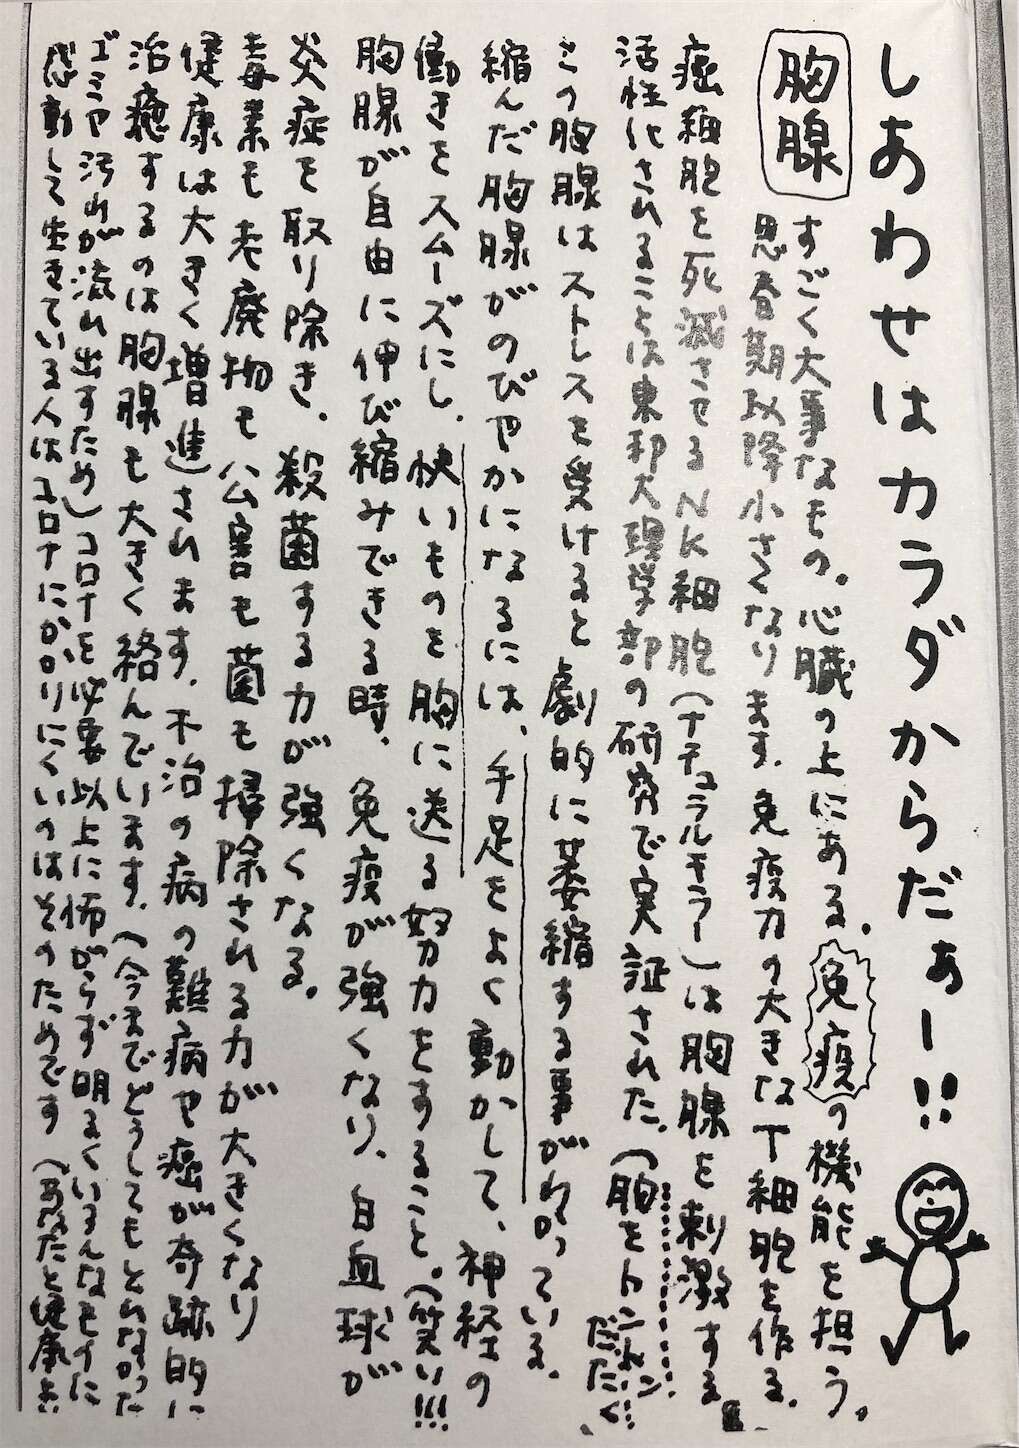 しあわせはカラダからだぁー!!
胸腺
すごく大事なもの。心臓の上にある。免疫の機能を担う。
思春期以降小さくなります。免疫力の大きなT細胞を作る。
癌細胞を死滅させるNK細胞(ナチュラルキラー)は胸腺を刺激する
活性化されることは東邦大理学部の研究で実証された。(胸をトントン
だたく
この胸腺はストレスを受けると劇的に萎縮する事がわかっている。
縮んだ胸腺がのびやかになるには、手足をよく動かして、神経の
働きをスムーズにし、快いものを胸に送る努力をすること。(笑い!!!
胸腺が自由に伸び縮みできる時、免疫が強くなり、白血球が
炎症を取り除き、殺菌する力が強くなる。
毒素も老廃物も公害も菌も掃除される力が大きくなり
健康は大きく増進されます。不治の病の難病や癌が奇跡的に
治癒するのは胸腺も大きく絡んでいます。(今までどうしてもとれなかった
ゴミや汚れが流れ出すため)コロナを必要以上に怖がらず明るくいろんなモノに
感動して生きている人はコロナにかかりにくいのはそのためです(あなたと健康より